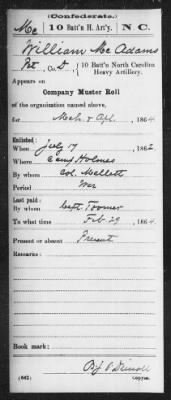 (Confederate.)
Mc 10 Batt'n H. Art'y. N C.
William Mc Adams
Pvt, Co. D, 10 Batt'n North Carolina
Heavy Artillery.
Appears on
Company Muster Roll
of the organization named above,
for Mch & Apl, 1864
Enlisted:
When July 17, 1862.
Where Camp Holmes
By whom Col. Mallett
Period War
Last paid:
By whom Capt. Toomer
To what time Feb. 29, 1864.
Present or absent Present
Remarks:
Book mark:
(642) Copyist.